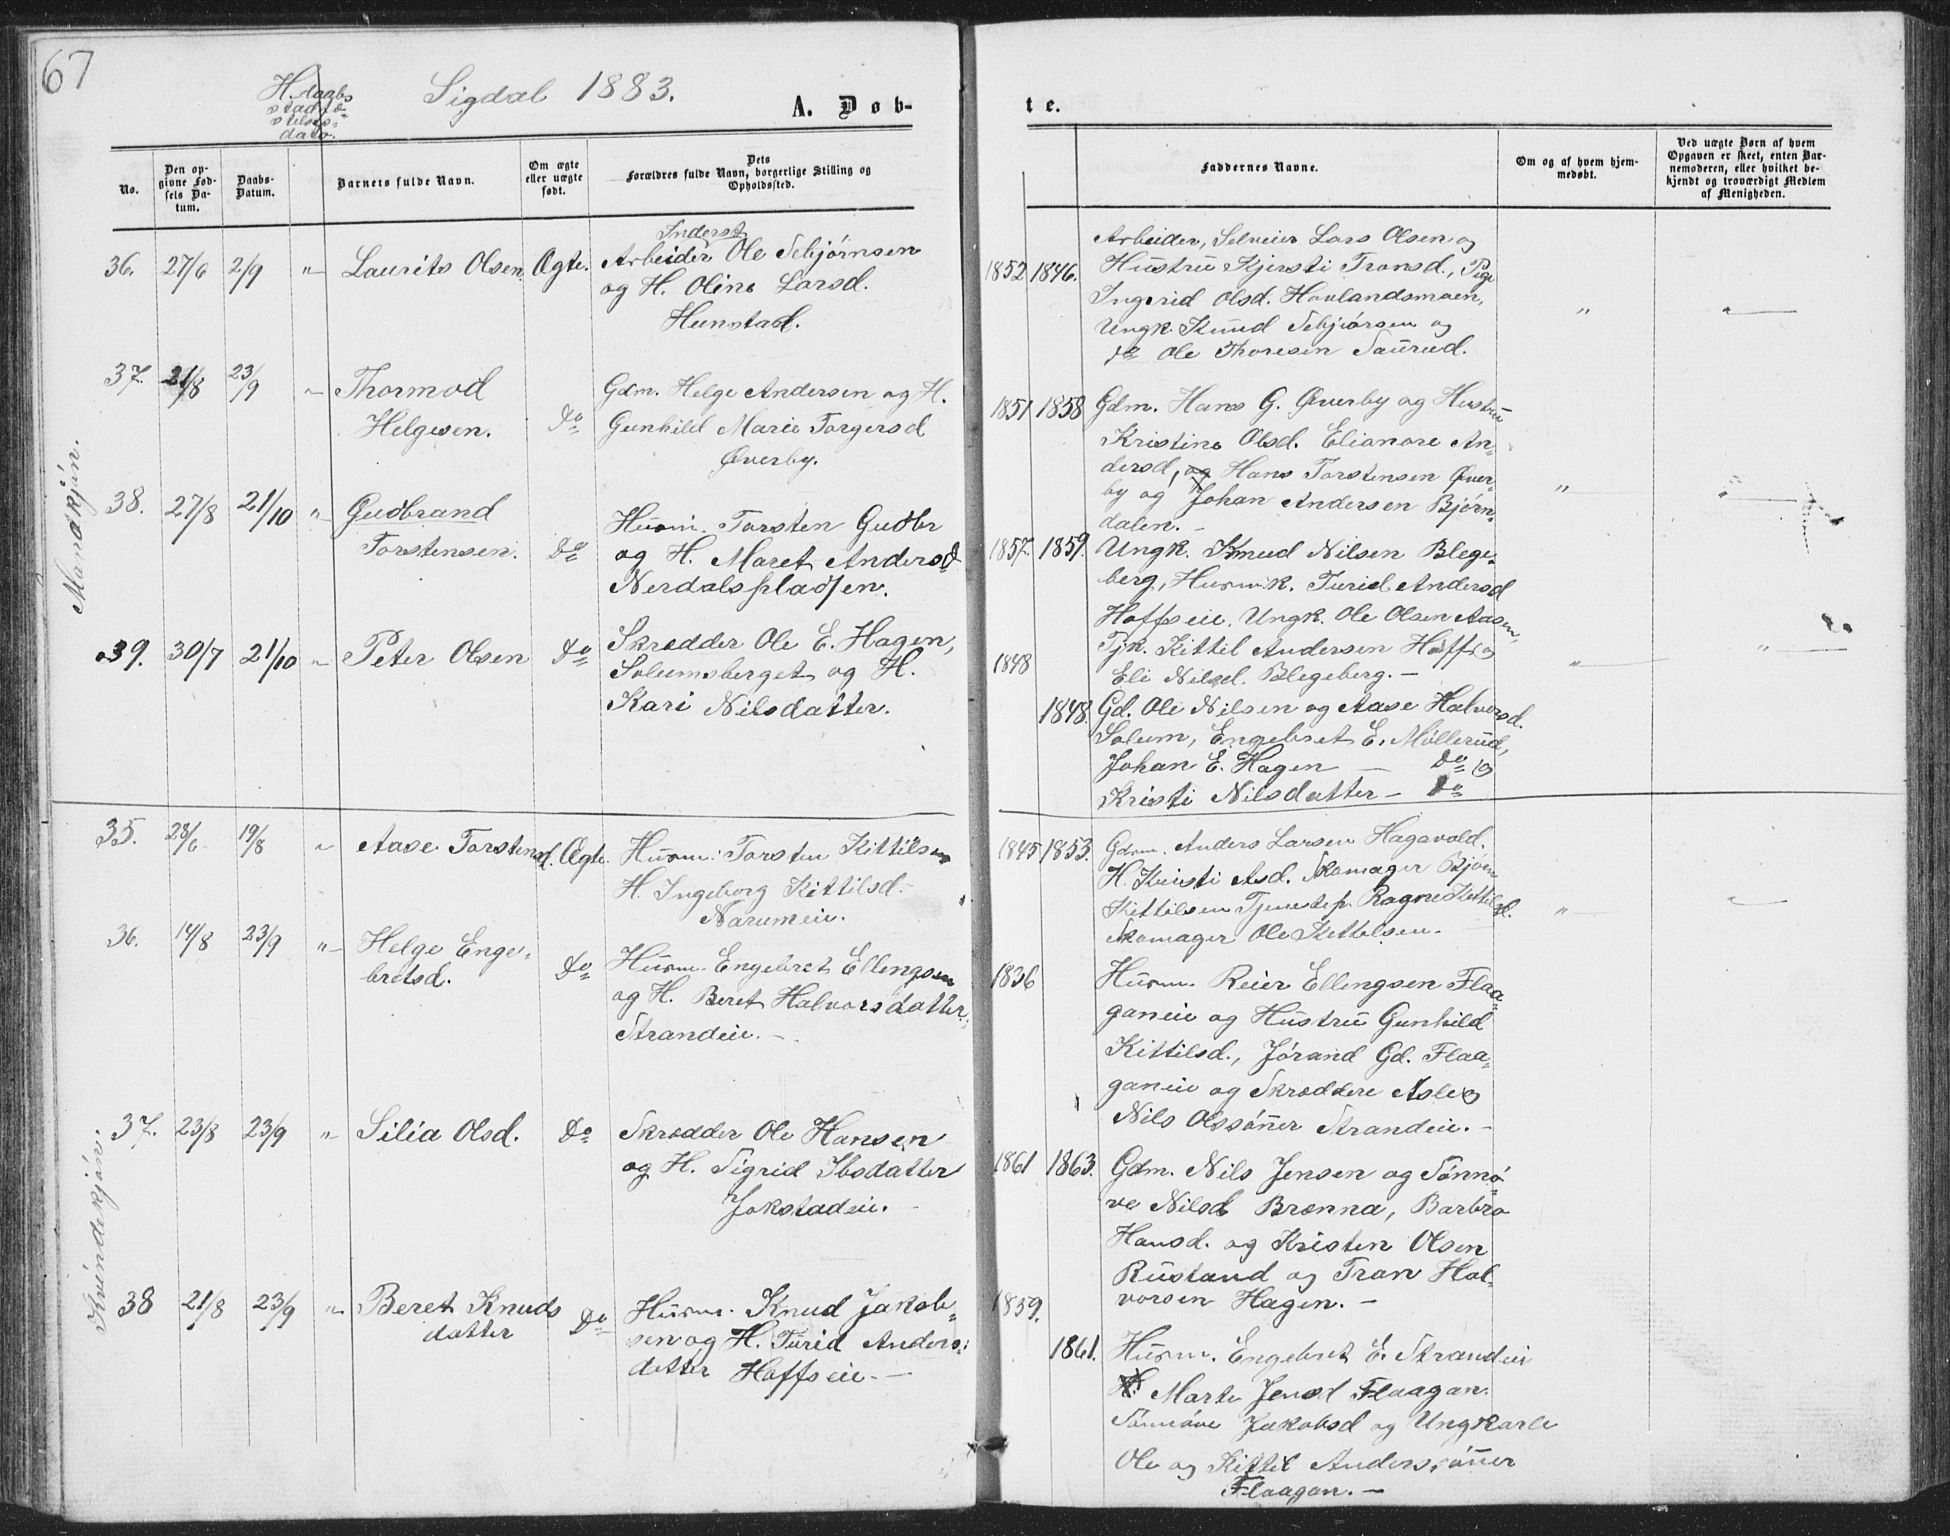 67
H.daabs
stadfæ-
stelses-
dato.
Sigdal 1883.
A. Døb-
te.
No.
Den op-
givne Fød-
sels Da-
tum.
Daabs-
Datum.
Barnets fulde Navn.
Om ægte
eller uægte
født.
Dets
Forældres fulde Navn, borgerlige Stilling og
Opholdssted.
Faddernes Navne.
Om og af hvem hjem-
medøbt.
Ved uægte Børn af hvem
Opgaven er skeet, enten Bar-
nemoderen, eller hvilket be-
kjendt og troværdigt Medlem
af Menigheden.
Mandkjøn.
36. 27/6 2/9 " Laurits Olsen Ægte.
Inderst
Arbeider Ole Schjørnsen
og H. Oline Larsd.
Hunstad.
1852 1846.
Arbeider, Selveier Lars Olsen og
Hustru Kjersti Transd., Pige
Ingerid Olsd. Hovlandsmoen,
Ungk. Knud Schjørsen og
do Ole Thoresen Saurud.
" "
37. 21/8 23/9 " Thormod
Helgesen. Do
Gdm. Helge Andersen og H.
Gunhild Marie Torgersd
Øverby.
1851 1858
Gdm. Hans G. Øverby og Hustru
Kristine Olsd. Elianore An-
dersd, og Hans Torstensen Øver-
by og Johan Andersen Bjørn-
dalen. -
" "
38. 27/8 21/10 " Gudbrand
Torstensen. Do
Husm. Torsten Gudbr
og H. Maret Andersd
Nerdalspladsen.
1857. 1859.
Ungk. Knud Nilsen Blege-
berg, Husmk. Turid Andersd
Hoffseie, Ungk. Ole Olsen Aasen,
Tjk. Kittil Andersen Hoffs og
Eli Nilsd. Blegeberg. -
" "
39. 30/7 21/10 " Peter Olsen Do
Skrædder Ole E. Hagen,
Solumsberget og H.
Kari Nilsdatter.
1848
1848.
Gd. Ole Nilsen og Aase Halvorsd.
Solum, Engebret E. Møllerud,
Johan E. Hagen — Do og
Kristi Nilsdatter - Do
Kvindekjøn.
35. 28/6 19/8 " Aase Torstensd. Ægte.
Husm. Torsten Kittilsen
H. Ingeborg Kittilsd.
Narumeie.
1845 1853.
Gdm. Anders Larsen Hagavold.
H. Kristi Asd. Skomager Bjørn
Kittilsen Tjenestep. Ragne Kittilsd.
Skomager Ole Kittilsen.
" "
36. 14/8 23/9 " Helge Enge-
bretsd. Do
Husm. Engebret Ellingsen
og H. Beret Halvorsdatter,
Strandeie. -
1836
Husm. Reier Ellingsen Flaa-
ganeie og Hustru Gunhild
Kittilsd., Jørand Gd. Flaa-
ganeie og Skræddere Asle og
Nils Olssønner Strandeie. -
37. 23/8 23/9 " Silia Olsd. Do
Skrædder Ole Hansen
og H. Sigrid Ibsdatter
Jokstadeie.
1861 1863.
Gdm. Nils Jensen og Sønnø-
ve Nilsd Brenna, Barbro
Hansd. og Kristen Olsen
Rustand og Tran Hal-
vorsen Hagen. -
38 21/8 23/9 " Beret Knuds
datter Do
Husm. Knud Jakob-
sen og H. Turid Anders-
datter Hoffseie. —
1859.
1861.
Husm. Engebret E. Strandeie
H. Marte Jensd Flaagan.
Sønnøve Jakobsd og Ungkarle
Ole og Kittil Anderssønner
Flaagan. —